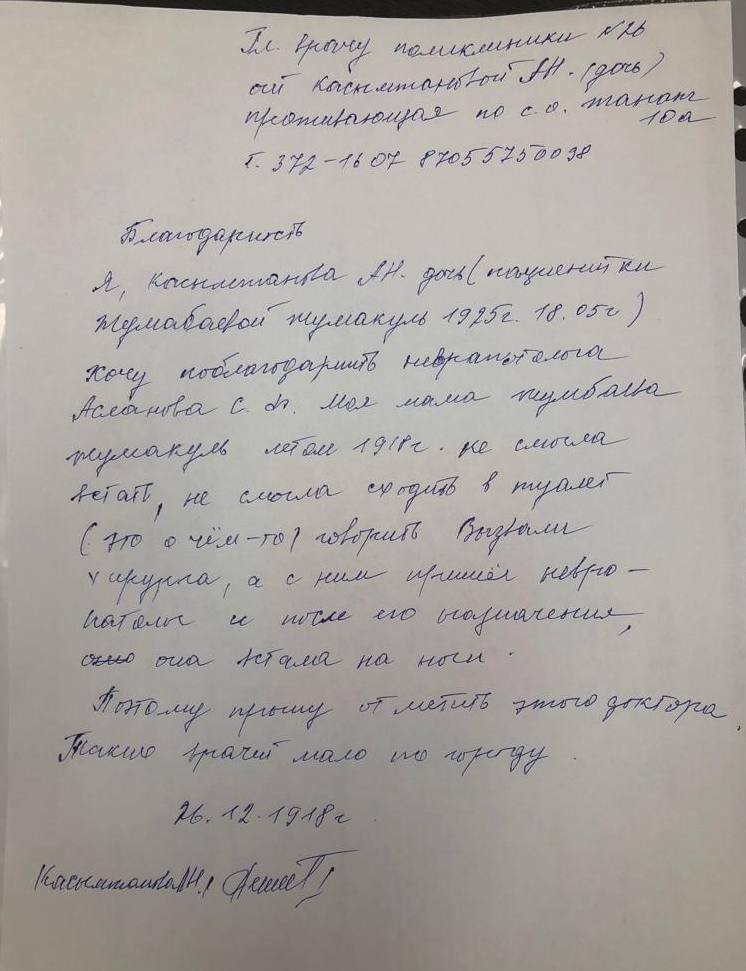 Гл. врачу поликлиники №26
от Касымжановой АН. (дочь)
проживающая по с.о. Жанонг
10а
т. 372-16 07 87055750098
Благодарность
Я, Касымжанова АН. дочь (пациентки
Жумабаевой Жумакуль 1925г. 18.05г)
Хочу поблагодарить невропатолога
Асланова С. Моя мама Жумбаева
Жумакуль летом 1918г. не смогла
встать, не смогла сходить в туалет
(это о чём-то) говорить Вызвали
хирурга, а с ним пришёл невро-
патолог и после его назначения,
она встала на ноги.
Поэтому прошу отметить этого доктора.
Таких врачей мало по городу.
26.12.1918г.
Касымжанова АН.